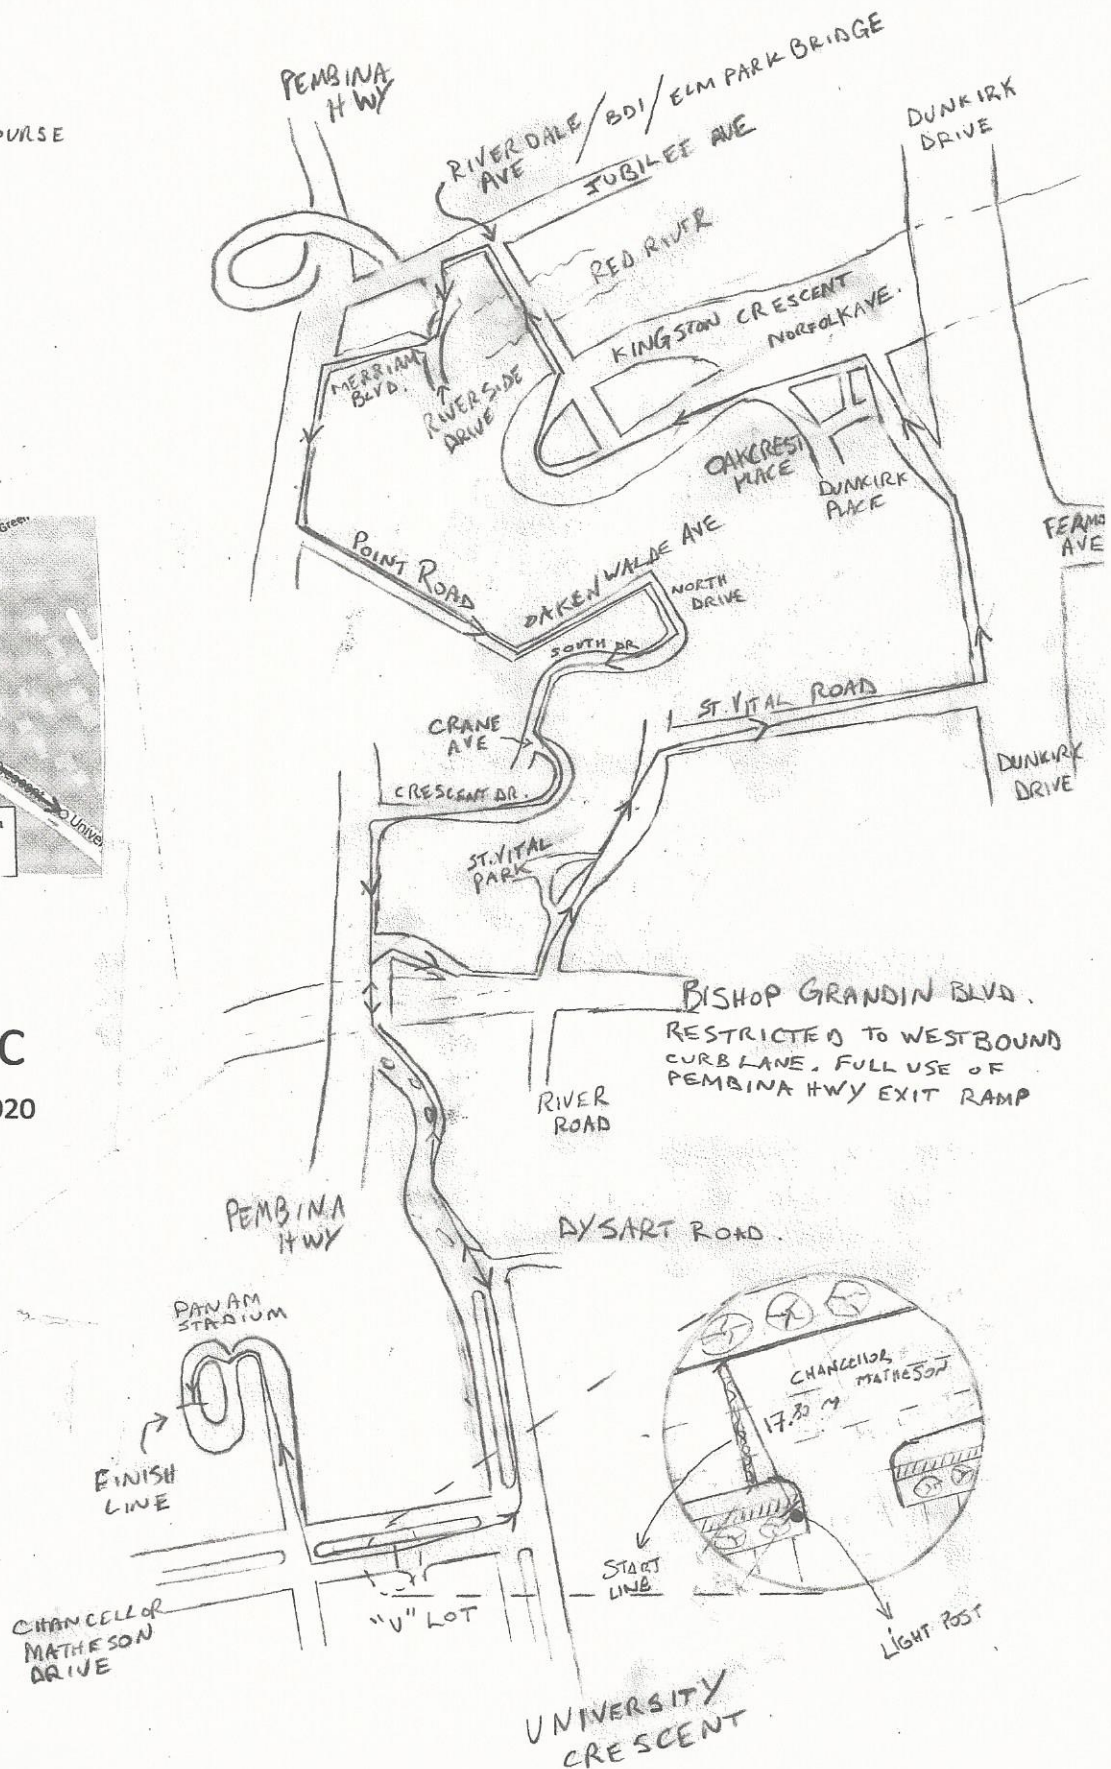 PEMBINA
HWY
RIVERDALE / BDI / ELM PARK BRIDGE
AVE
JUBILEE AVE
DUNKIRK
DRIVE
RED RIVER
KINGSTON CRESCENT
NORFOLK AVE.
MERRIAM
BLVD.
RIVERSIDE
DRIVE
OAKCREST
PLACE
DUNKIRK
PLACE
AVE
Green
POINT ROAD
OAKENWALDE AVE
NORTH
DRIVE
SOUTH DR
CRANE
AVE
ST. VITAL ROAD
CRESCENT DR.
DUNKIRK
DRIVE
ST. VITAL
PARK
BISHOP GRANDIN BLVD.
RESTRICTED TO WESTBOUND
CURB LANE. FULL USE OF
PEMBINA HWY EXIT RAMP
C
RIVER
ROAD
PEMBINA
HWY
DYSART ROAD.
PAN AM
STADIUM
CHANCELLOR
MATHESON
17.80 M
FINISH
LINE
START
LINE
"U" LOT
CHANCELLOR
MATHESON
DRIVE
LIGHT POST
UNIVERSITY
CRESCENT